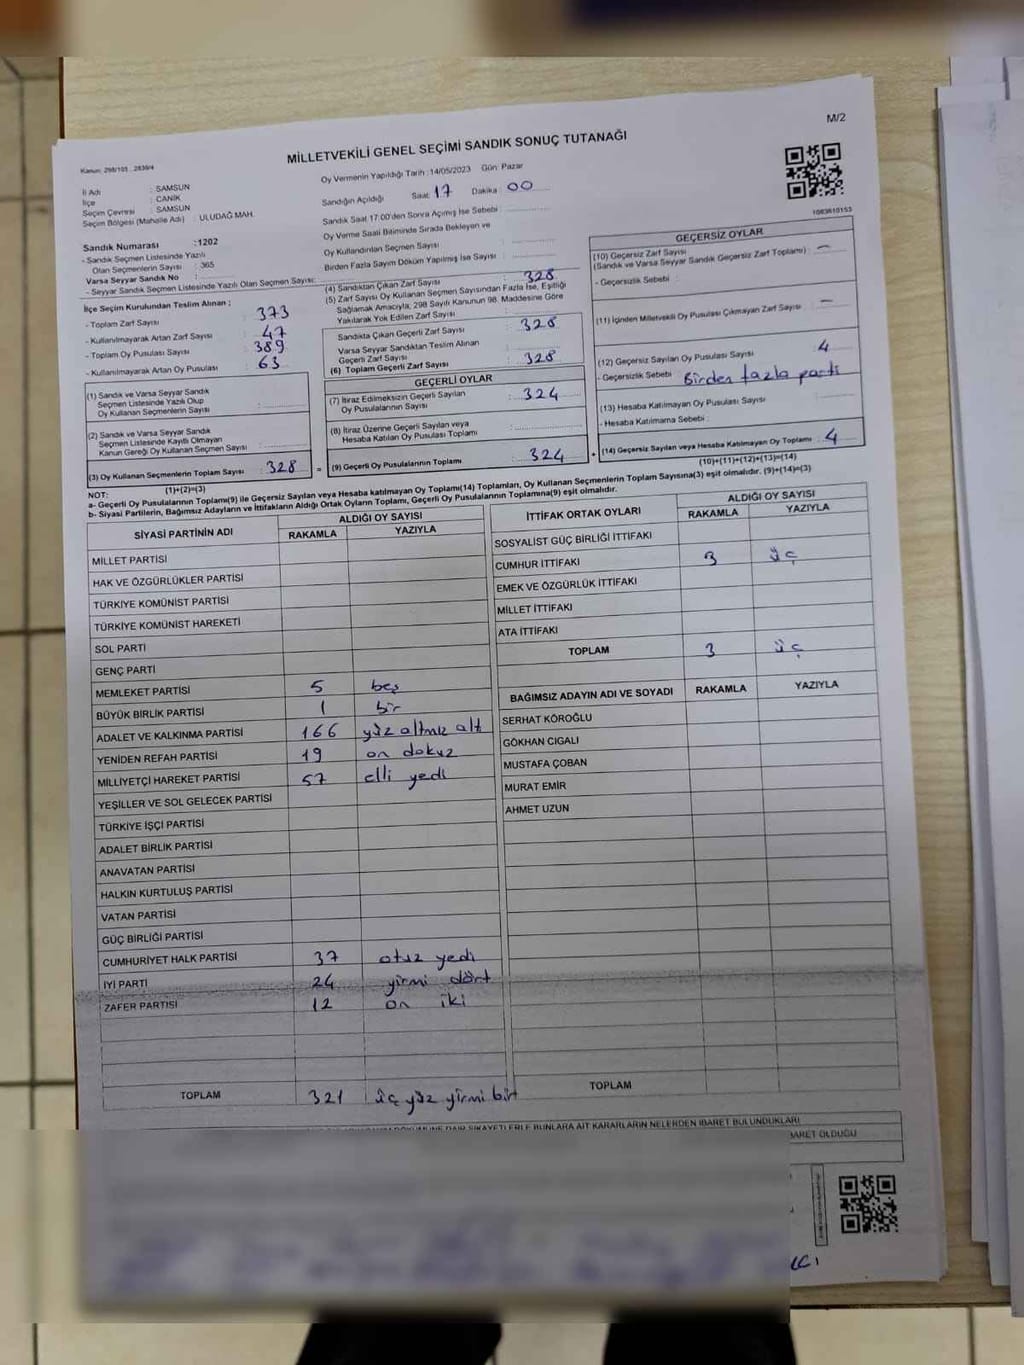 M/2
Kanun: 298/105 , 2839/4
MİLLETVEKİLİ GENEL SEÇİMİ SANDIK SONUÇ TUTANAĞI
İl Adı : SAMSUN
İlçe : CANİK
Seçim Çevresi : SAMSUN
Seçim Bölgesi (Mahalle Adı) : ULUDAĞ MAH.
Sandık Numarası : 1202
- Sandık Seçmen Listesinde Yazılı
Olan Seçmenlerin Sayısı : 365
Varsa Seyyar Sandık No :
- Seyyar Sandık Seçmen Listesinde Yazılı Olan Seçmen Sayısı:
İlçe Seçim Kurulundan Teslim Alınan ;
- Toplam Zarf Sayısı : 373
- Kullanılmayarak Artan Zarf Sayısı : 47
- Toplam Oy Pusulası Sayısı : 389
- Kullanılmayarak Artan Oy Pusulası : 63
(1) Sandık ve Varsa Seyyar Sandık
Seçmen Listesinde Yazılı Olup
Oy Kullanan Seçmenlerin Sayısı :
(2) Sandık ve Varsa Seyyar Sandık
Seçmen Listesinde Kayıtlı Olmayan
Kanun Gereği Oy Kullanan Seçmen Sayısı :
(3) Oy Kullanan Seçmenlerin Toplam Sayısı : 328
(1)+(2)=(3)
Oy Vermenin Yapıldığı Tarih :14/05/2023 Gün: Pazar
Sandığın Açıldığı Saat: 17 Dakika : 00
Sandık Saat 17:00'den Sonra Açılmış İse Sebebi :
Oy Verme Saati Bitiminde Sırada Bekleyen ve
Oy Kullandırılan Seçmen Sayısı :
Birden Fazla Sayım Döküm Yapılmış İse Sayısı :
(4) Sandıktan Çıkan Zarf Sayısı : 328
(5) Zarf Sayısı Oy Kullanan Seçmen Sayısından Fazla İse, Eşitliği
Sağlamak Amacıyla; 298 Sayılı Kanunun 98. Maddesine Göre
Yakılarak Yok Edilen Zarf Sayısı :
Sandıkta Çıkan Geçerli Zarf Sayısı : 328
Varsa Seyyar Sandıktan Teslim Alınan
Geçerli Zarf Sayısı :
(6) Toplam Geçerli Zarf Sayısı : 328
GEÇERLİ OYLAR
(7) İtiraz Edilmeksizin Geçerli Sayılan
Oy Pusulalarının Sayısı : 324
(8) İtiraz Üzerine Geçerli Sayılan veya
Hesaba Katılan Oy Pusulası Toplamı :
= (9) Geçerli Oy Pusulalarının Toplamı : 324 +
1083810153
GEÇERSİZ OYLAR
(10) Geçersiz Zarf Sayısı
(Sandık ve Varsa Seyyar Sandık Geçersiz Zarf Toplamı) : —
- Geçersizlik Sebebi :
(11) İçinden Milletvekili Oy Pusulası Çıkmayan Zarf Sayısı : —
(12) Geçersiz Sayılan Oy Pusulası Sayısı : 4
- Geçersizlik Sebebi : Birden fazla parti
(13) Hesaba Katılmayan Oy Pusulası Sayısı :
- Hesaba Katılmama Sebebi :
(14) Geçersiz Sayılan veya Hesaba Katılmayan Oy Toplamı : 4
(10)+(11)+(12)+(13)=(14)
NOT:
a- Geçerli Oy Pusulalarının Toplamı(9) ile Geçersiz Sayılan veya Hesaba katılmayan Oy Toplamı(14) Toplamları, Oy Kullanan Seçmenlerin Toplam Sayısına(3) eşit olmalıdır. (9)+(14)=(3)
b- Siyasi Partilerin, Bağımsız Adayların ve İttifakların Aldığı Ortak Oyların Toplamı, Geçerli Oy Pusulalarının Toplamına(9) eşit olmalıdır.
SİYASİ PARTİNİN ADI ALDIĞI OY SAYISI
RAKAMLA YAZIYLA
MİLLET PARTİSİ
HAK VE ÖZGÜRLÜKLER PARTİSİ
TÜRKİYE KOMÜNİST PARTİSİ
TÜRKİYE KOMÜNİST HAREKETİ
SOL PARTİ
GENÇ PARTİ
MEMLEKET PARTİSİ 5 beş
BÜYÜK BİRLİK PARTİSİ 1 bir
ADALET VE KALKINMA PARTİSİ 166 yüz altmış altı
YENİDEN REFAH PARTİSİ 19 on dokuz
MİLLİYETÇİ HAREKET PARTİSİ 57 elli yedi
YEŞİLLER VE SOL GELECEK PARTİSİ
TÜRKİYE İŞÇİ PARTİSİ
ADALET BİRLİK PARTİSİ
ANAVATAN PARTİSİ
HALKIN KURTULUŞ PARTİSİ
VATAN PARTİSİ
GÜÇ BİRLİĞİ PARTİSİ
CUMHURİYET HALK PARTİSİ 37 otuz yedi
İYİ PARTİ 24 yirmi dört
ZAFER PARTİSİ 12 on iki
TOPLAM 321 üç yüz yirmi bir
İTTİFAK ORTAK OYLARI ALDIĞI OY SAYISI
RAKAMLA YAZIYLA
SOSYALİST GÜÇ BİRLİĞİ İTTİFAKI
CUMHUR İTTİFAKI 3 üç
EMEK VE ÖZGÜRLÜK İTTİFAKI
MİLLET İTTİFAKI
ATA İTTİFAKI
TOPLAM 3 üç
BAĞIMSIZ ADAYIN ADI VE SOYADI RAKAMLA YAZIYLA
SERHAT KÖROĞLU
GÖKHAN CIGALI
MUSTAFA ÇOBAN
MURAT EMİR
AHMET UZUN
TOPLAM
DAİR ŞİKAYETLERLE BUNLARA AİT KARARLARIN NELERDEN İBARET BULUNDUKLARI
İBARET OLDUĞU